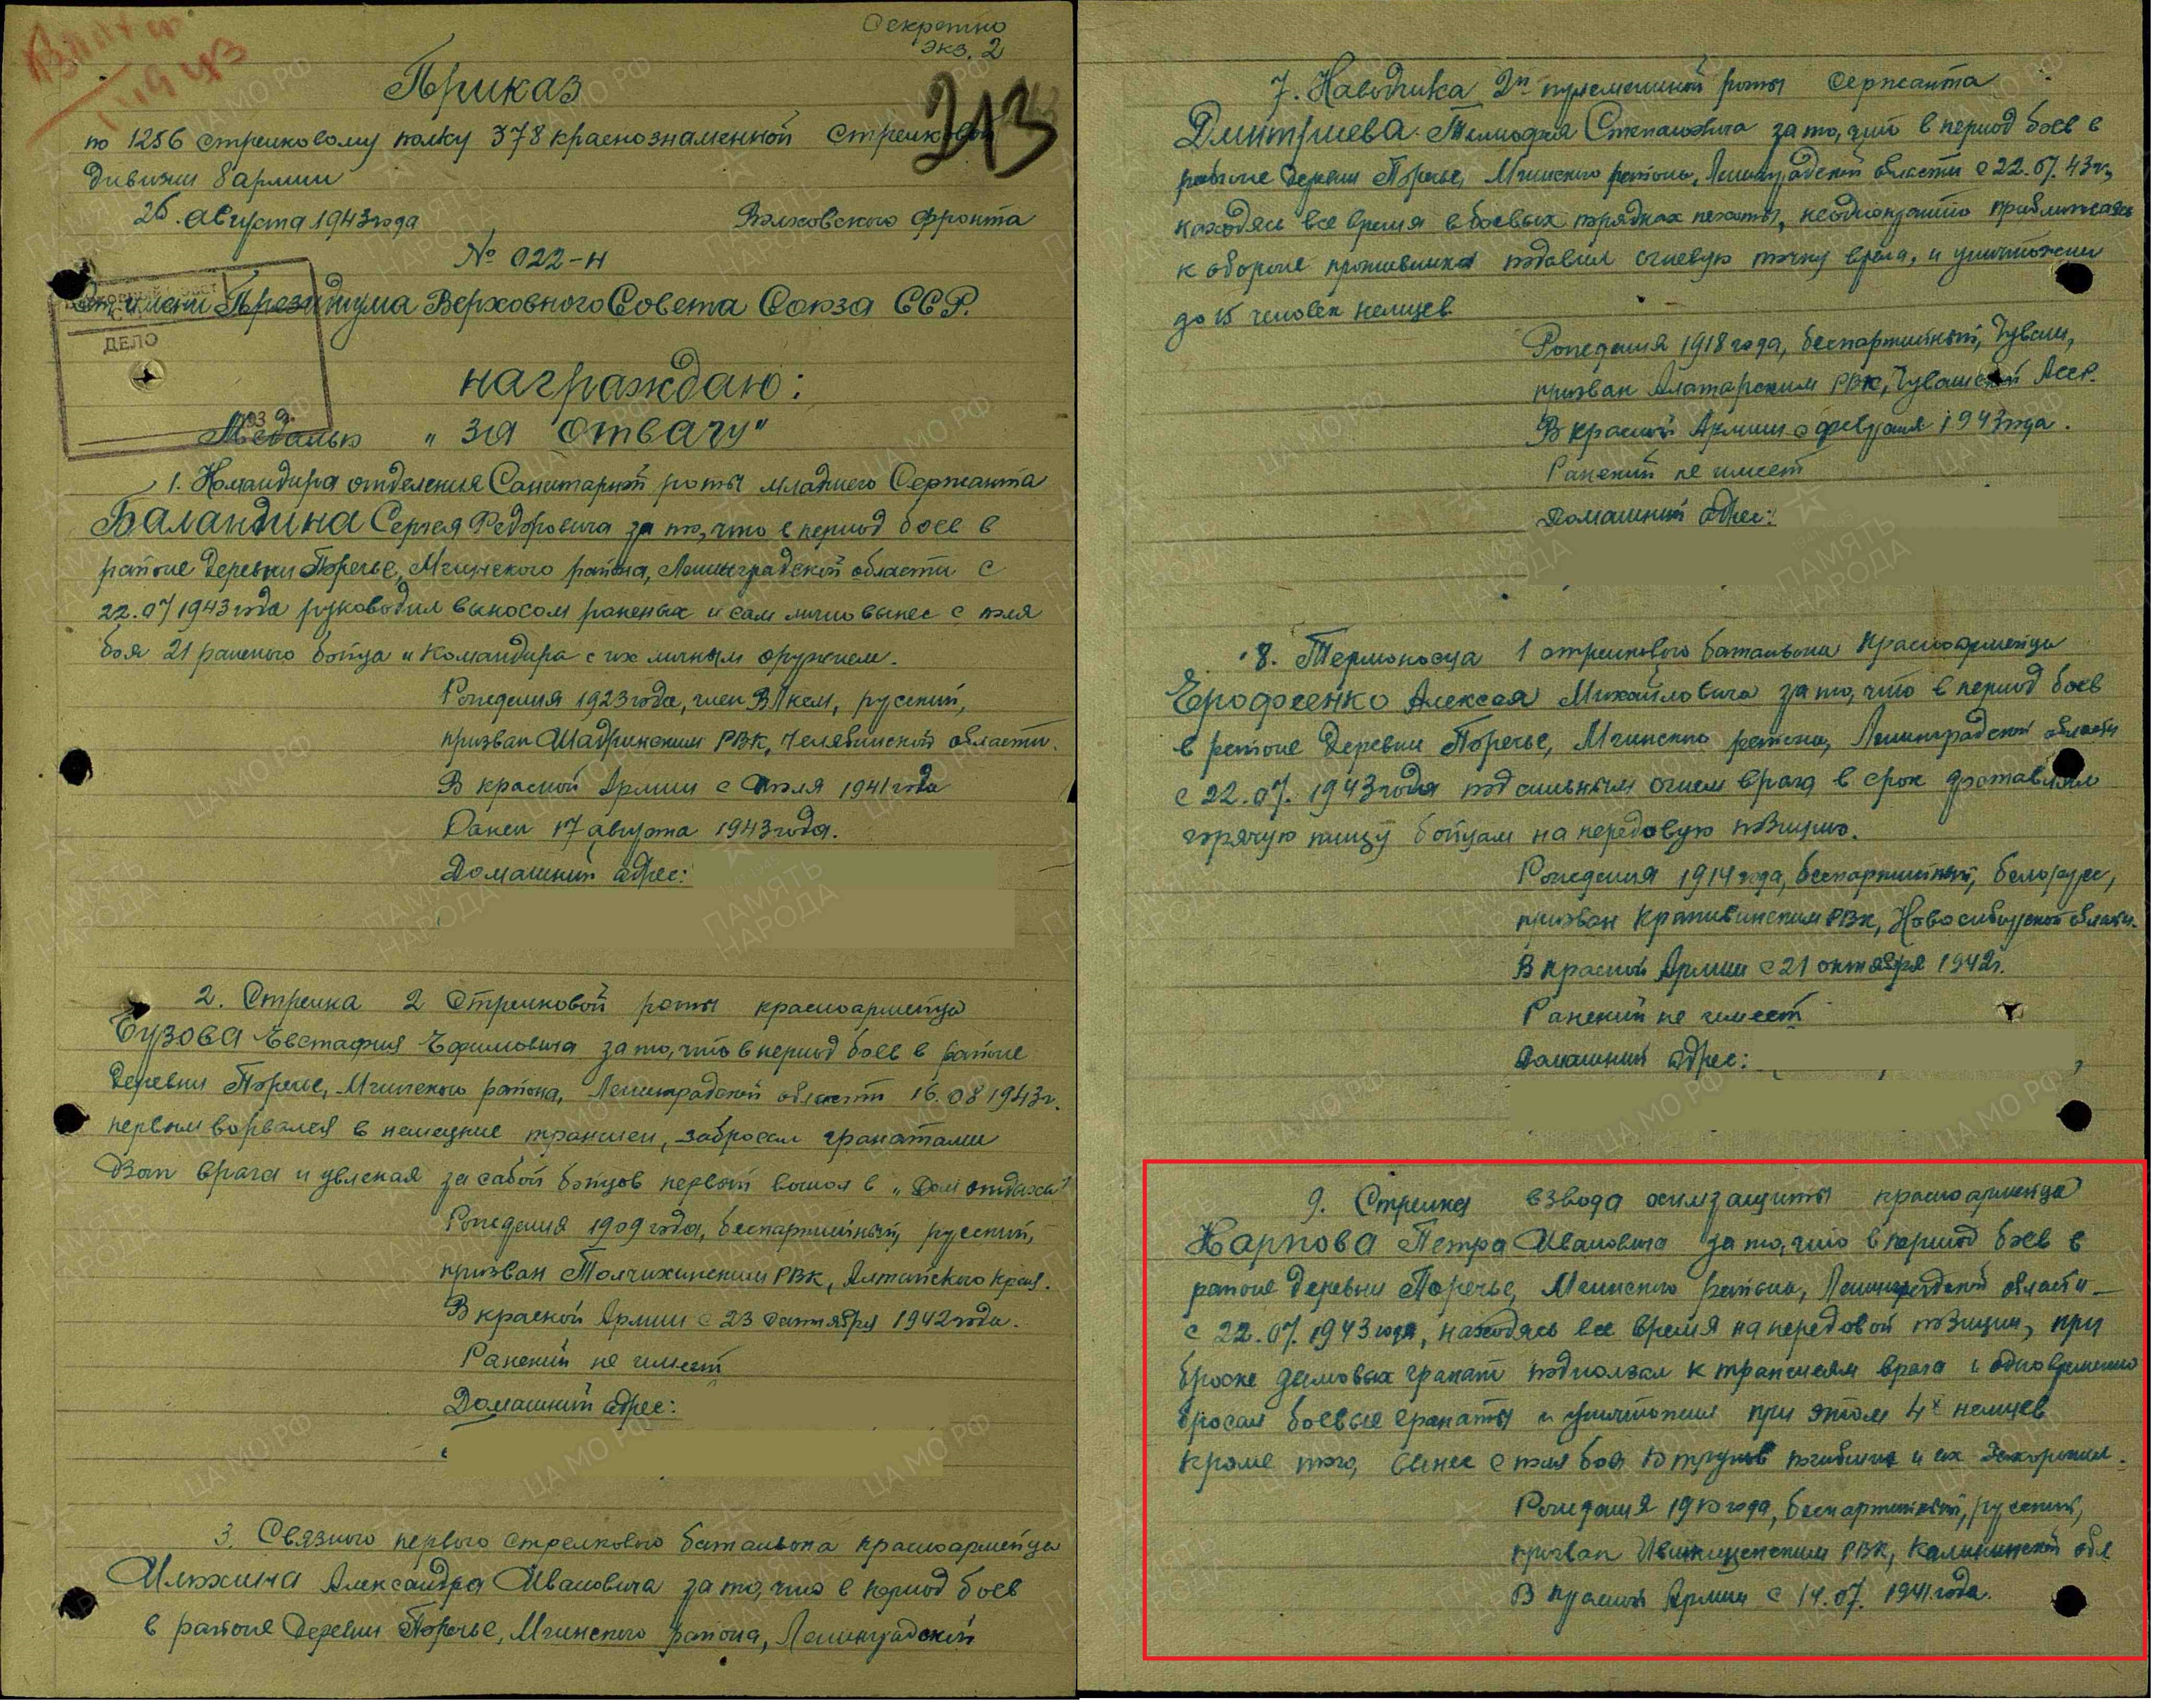 Секретно
экз. 2
213
Приказ
по 1256 стрелковому полку 378 краснознаменной стрелковой
дивизии 8 армии
26. августа 1943 года Волховского фронта
№ 022-н
От имени Президиума Верховного Совета Союза ССР.
ДЕЛО
награждаю:
Медалью "За отвагу"
1. Командира отделения Санитарной роты младшего Сержанта
Баландина Сергея Федоровича за то, что в период боев в
районе деревни Поречье, Мгинского района, Ленинградской области с
22.07 1943 года руководил выносом раненых и сам лично вынес с поля
боя 21 раненого бойца и командира с их личным оружием.
Рождения 1923 года, член ВЛКСМ, русский,
призван Шадринским РВК, Челябинской области.
В красной Армии с Июля 1941 года
Ранен 17 августа 1943 года.
Домашний адрес:
2. Стрелка 2 Стрелковой роты красноармейца
Бузова Евстафия Ефимовича за то, что в период боев в районе
деревни Поречье, Мгинского района, Ленинградской области 16.08 1943 г.
первым ворвался в немецкие траншеи, забросал гранатами
Дзот врага и увлекая за сабой бойцов первый вошол в "Дом отдыха"
Рождения 1909 года, беспартийный, русский,
призван Топчихинским РВК, Алтайского края.
В красной Армии с 23 октября 1942 года.
Ранений не имеет
Домашний адрес:
3. Связного первого стрелкового батальона красноармейца
Илюхина Александра Ивановича за то, что в период боев
в районе деревни Поречье, Мгинского района, Ленинградской
7. Наводчика 2й пулеметной роты сержанта
Дмитриева Тимофея Степановича за то, что в период боев в
районе деревни Поречье, Мгинского района, Ленинградской области с 22.07.43 г.,
находясь все время в боевых порядках пехоты, неоднократно приближаясь
к обороне противника подавил огневую точку врага, и уничтожил
до 15 человек немцев.
Рождения 1918 года, беспартийный, Чуваш,
призван Алатарским РВК, Чувашской АССР.
В красной Армии с февраля 1943 года.
Ранений не имеет
Домашний адрес:
8. Термоносца 1 стрелкового батальона Красноармейца
Ерофеенко Алексея Михайловича за то, что в период боев
в районе деревни Поречье, Мгинского района, Ленинградской области
с 22.07. 1943 года под сильным огнем врага в срок доставлял
горячую пищу бойцам на передовую позицию.
Рождения 1914 года, беспартийный, белорус,
призван Крапивинским РВК, Новосибирской области.
В красной Армии с 21 октября 1942 г.
Ранений не имеет
Домашний адрес:
9. Стрелка взвода химзащиты красноармейца
Карпова Петра Ивановича за то, что в период боев в
районе деревни Поречье, Мгинского района, Ленинградской области
с 22.07. 1943 года, находясь все время на передовой позиции, при
броске дымовых гранат подползал к траншеям врага и одновременно
бросал боевые гранаты и уничтожил при этом 4х немцев
кроме того, вынес с поля боя 10 трупов погибших и их захоронил.
Рождения 1910 года, беспартийный, русский,
призван РВК, Калининской обл
В красной Армии с 14.07. 1941 года.
ЦА МО РФ
ПАМЯТЬ НАРОДА